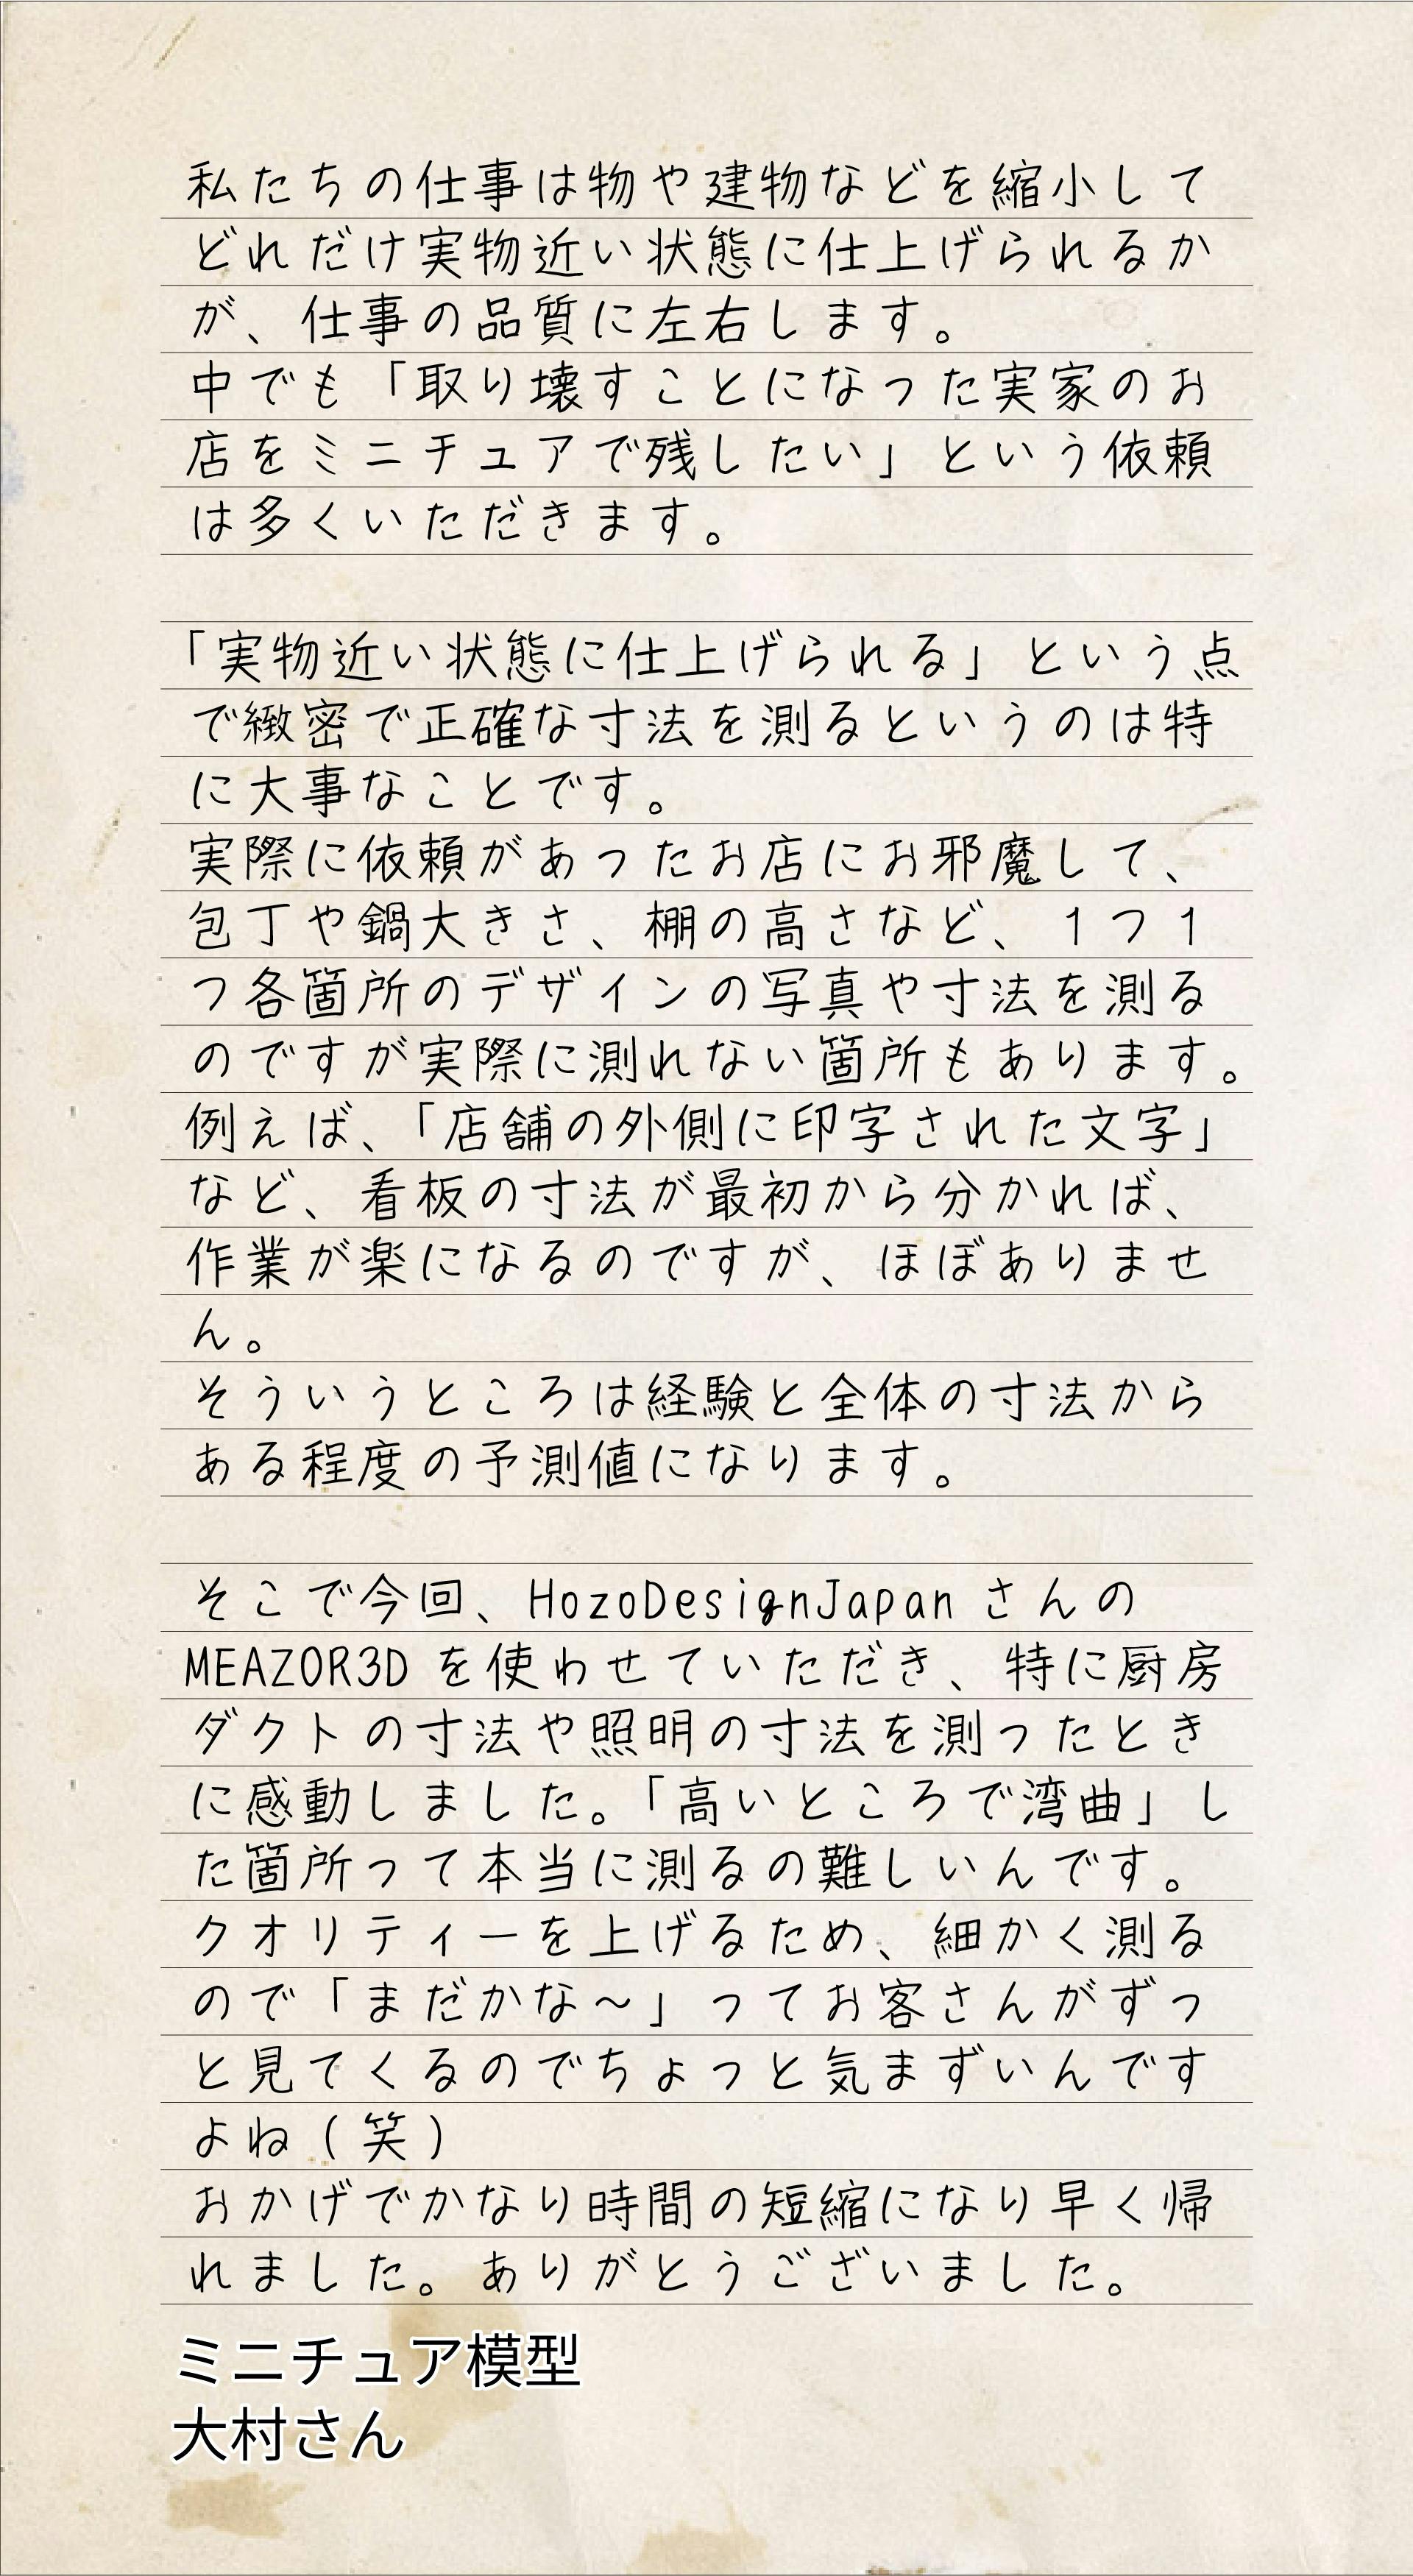 私たちの仕事は物や建物などを縮小して
どれだけ実物近い状態に仕上げられるか
が、仕事の品質に左右します。
中でも「取り壊すことになった実家のお
店をミニチュアで残したい」という依頼
は多くいただきます。
「実物近い状態に仕上げられる」という点
で緻密で正確な寸法を測るというのは特
に大事なことです。
実際に依頼があったお店にお邪魔して、
包丁や鍋大きさ、棚の高さなど、１つ１
つ各箇所のデザインの写真や寸法を測る
のですが実際に測れない箇所もあります。
例えば、「店舗の外側に印字された文字」
など、看板の寸法が最初から分かれば、
作業が楽になるのですが、ほぼありませ
ん。
そういうところは経験と全体の寸法から
ある程度の予測値になります。
そこで今回、HozoDesignJapanさんの
MEAZOR3Dを使わせていただき、特に厨房
ダクトの寸法や照明の寸法を測ったとき
に感動しました。「高いところで湾曲」し
た箇所って本当に測るの難しいんです。
クオリティーを上げるため、細かく測る
ので「まだかな～」ってお客さんがずっ
と見てくるのでちょっと気まずいんです
よね（笑）
おかげでかなり時間の短縮になり早く帰
れました。ありがとうございました。
ミニチュア模型
大村さん